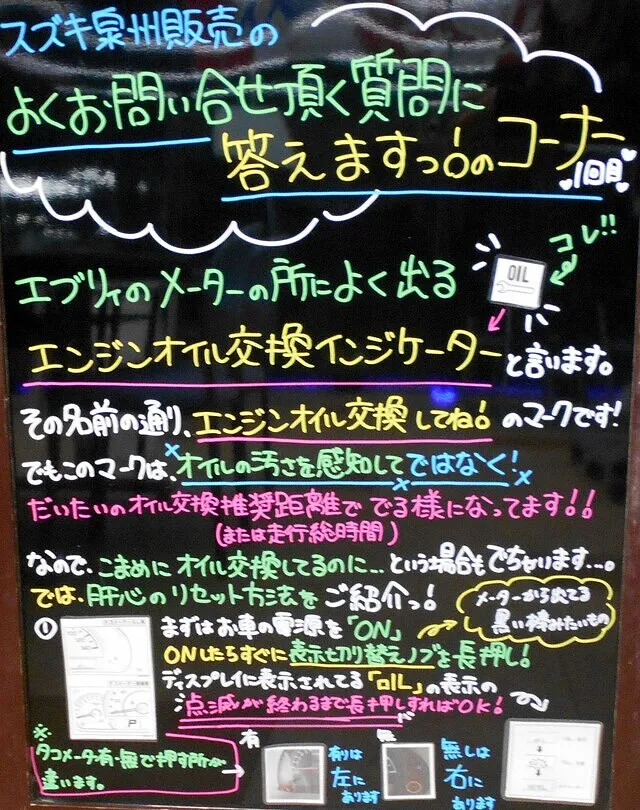 スズキ泉州販売の
よくお問い合せ頂く質問に
答えますっ!のコーナー
1回目
コレ!!
OIL
エブリィのメーターの所によく出る
エンジンオイル交換インジケーターと言います。
その名前の通り、エンジンオイル交換してね!のマークです!
でもこのマークは、オイルの汚さを感知してではなく!
だいたいのオイル交換推奨距離で でる様になってます!!
(または走行総時間)
なので、こまめにオイル交換してるのに…という場合もでちゃいます…。
では、肝心のリセット方法をご紹介っ!
メーターから出てる
黒い棒みたいもの
① まずはお車の電源を「ON」
ONしたらすぐに表示切り替えノブを長押し!
ディスプレイに表示されてる「OIL」の表示の
点滅が終わるまで長押しすればOK!
※タコメータ有・無で押す所が
違います。
有
有りは
左に
あります
無
無しは
右に
あります